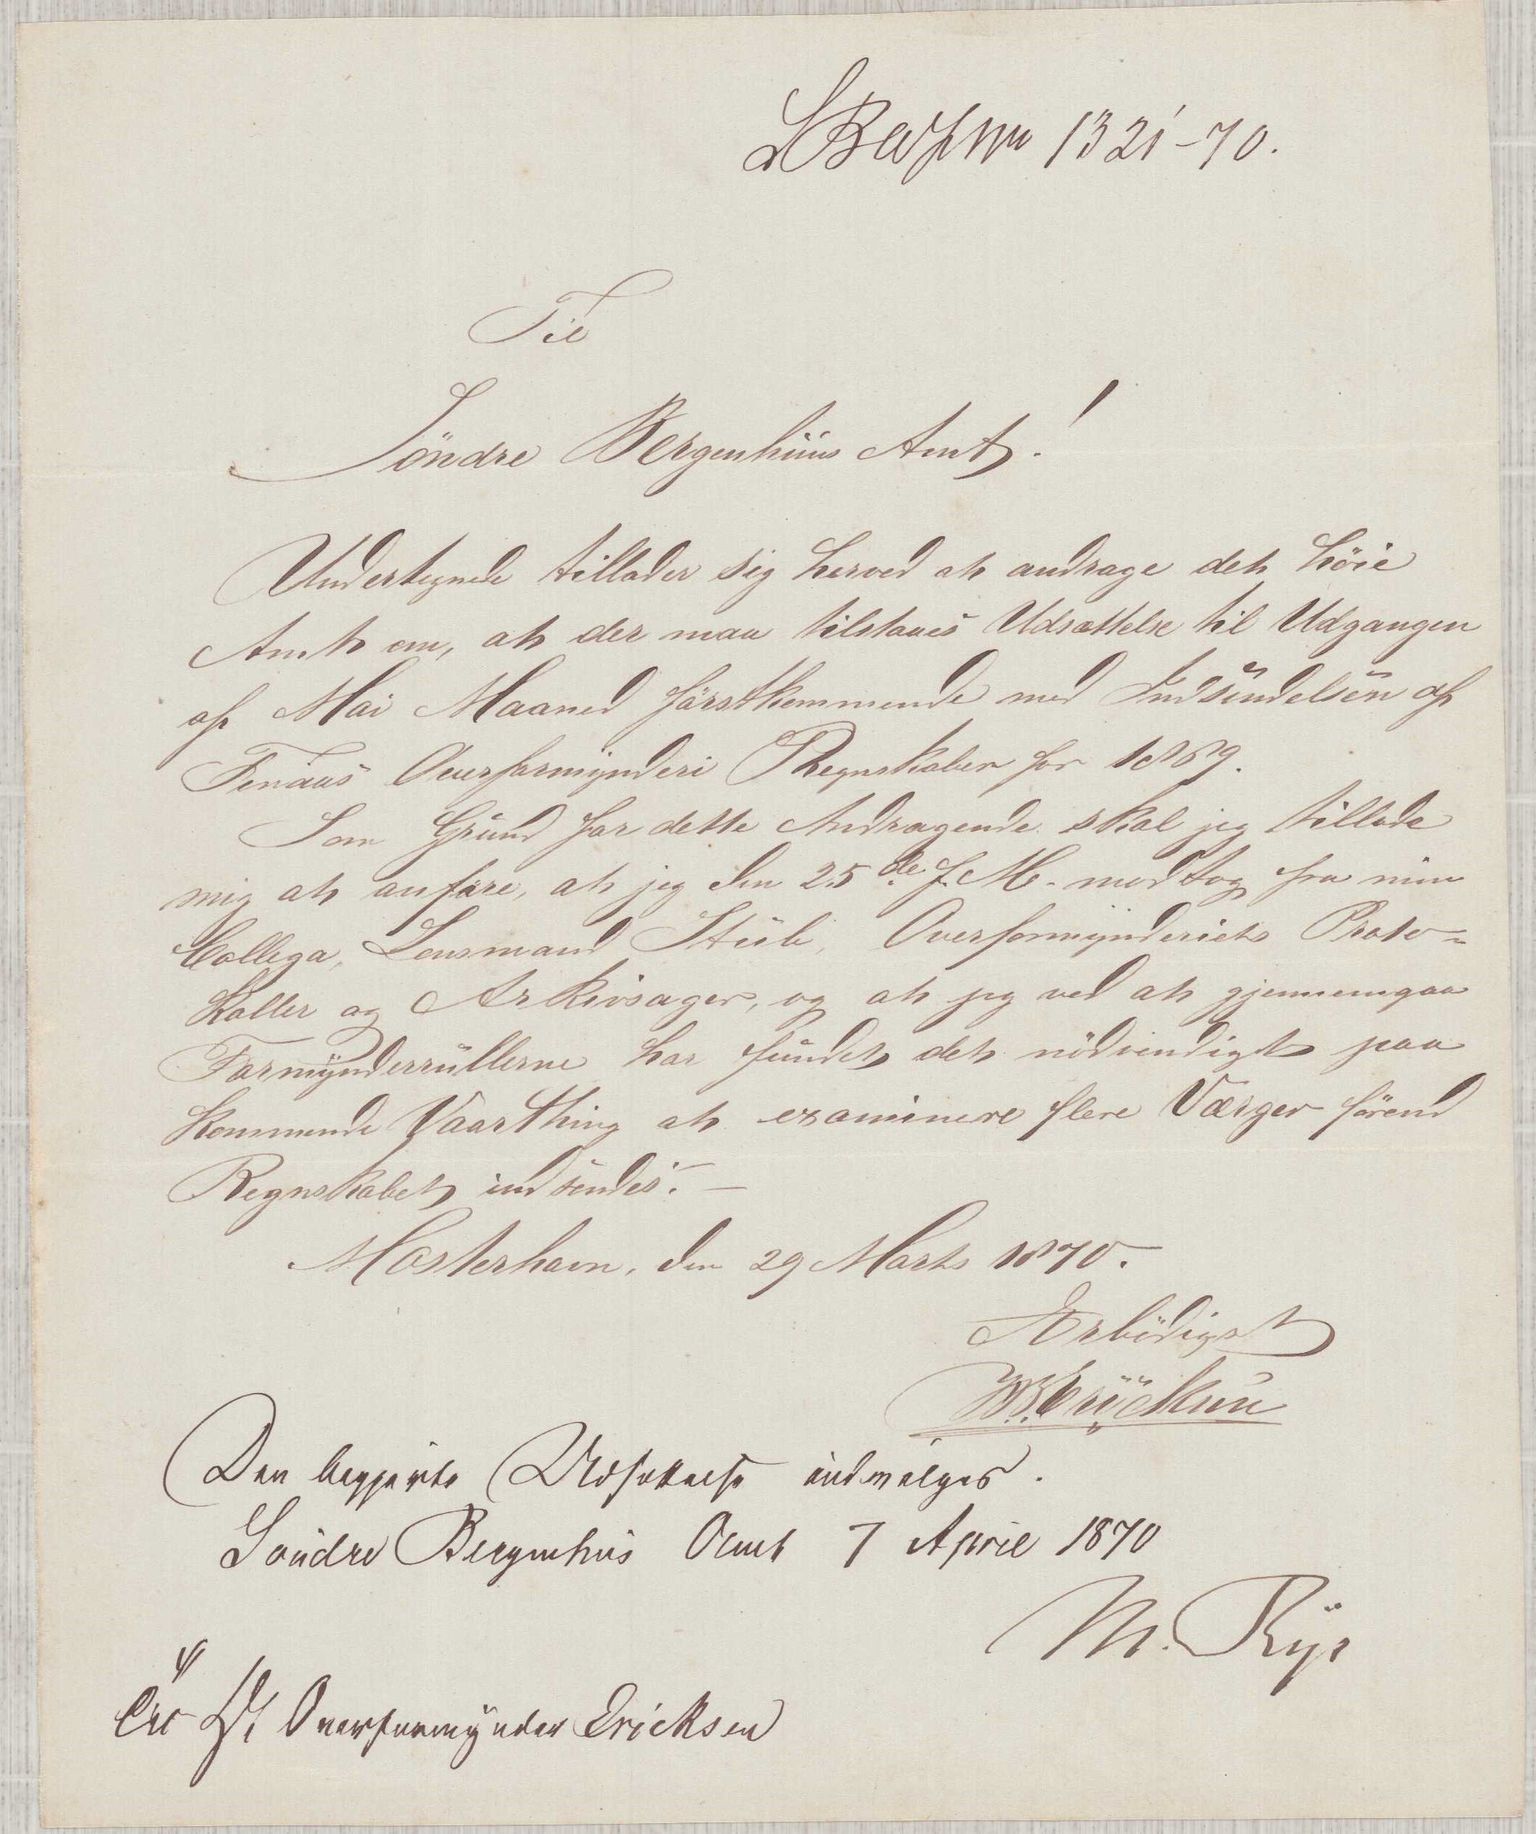 SBA JNo 1321-70.
Til
Söndre Bergenhuus Amt!
Undertegnede tillader sig herved at andrage det höie
Amt om, at der maa tilstaaes Udsættelse til Udgangen
af Mai Maaned förstkommende med Indsendelsen af
Finaas Overformynderi Regnskaber for 1869.
Som Grund for dette Andragende skal jeg tillade
mig at anføre, at jeg den 25de f. M. modtog fra min
Collega, Lensmand Stub, Overformynderiets Proto-
koller og Arkivsager, og at jeg ved at gjennemgaa
Formynderrullerne har fundet det nödvendigt paa
kommende Vaarthing at examinere flere Værger förend
Regnskabet indsendes.—
Mosterhavn, den 29 Marts 1870.
Ærbödigst
Ericksen
Den begjerte Udsættelse indvilges.
Söndre Bergenhus Amt 7 April 1870
M. Rye
Til Hr Overformynder Ericksen